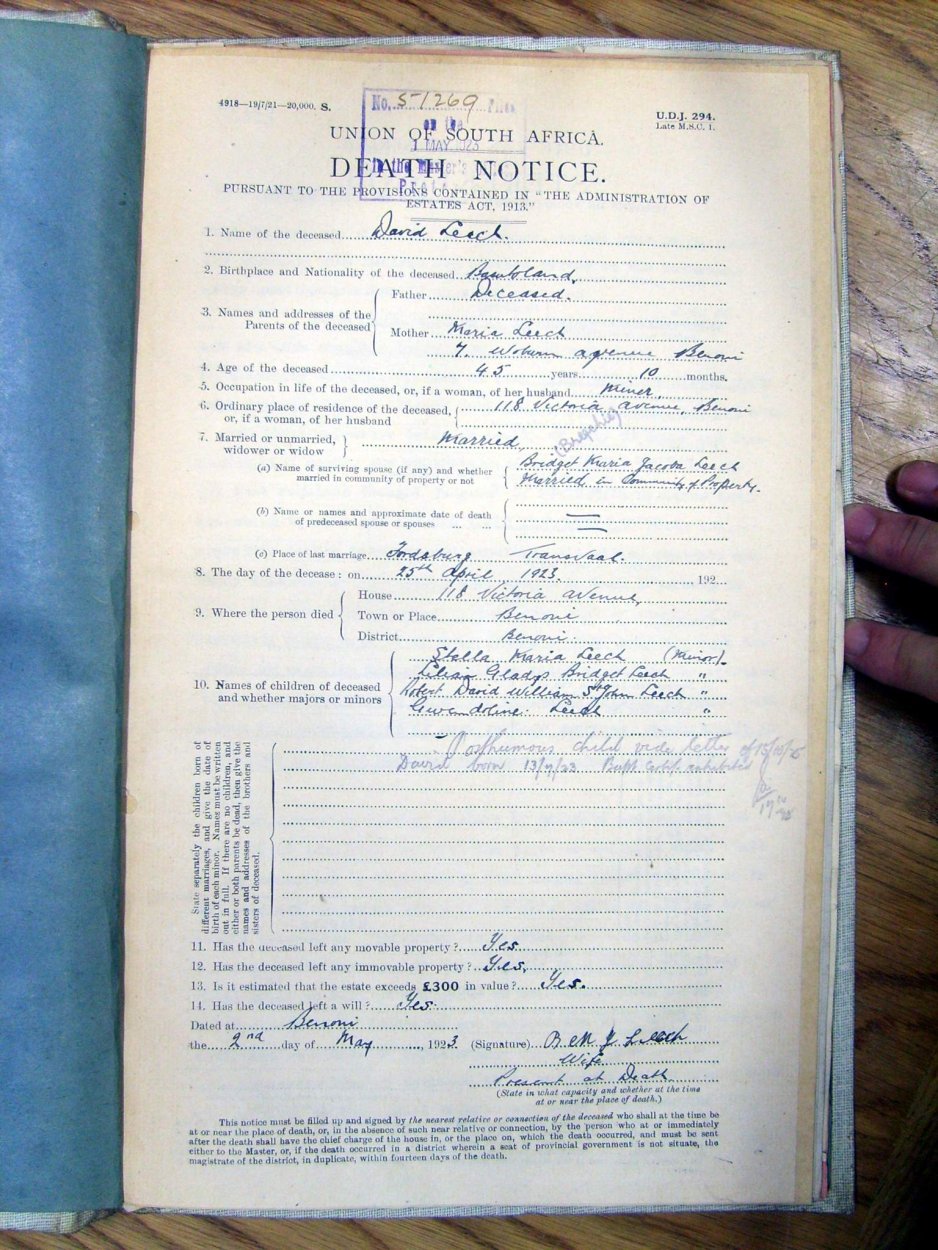 4918—19/7/21—20,000. S.
No. 51269 Filed
on the
1 MAY 1923
In the Master's
U.D.J. 294.
Late M.S.C. 1.
UNION OF SOUTH AFRICA.
DEATH NOTICE.
PURSUANT TO THE PROVISIONS CONTAINED IN "THE ADMINISTRATION OF
ESTATES ACT, 1913."
1. Name of the deceased David Leech.
2. Birthplace and Nationality of the deceased Basutoland.
3. Names and addresses of the Parents of the deceased
Father Deceased.
Mother Maria Leech
7. Woburn avenue Benoni
4. Age of the deceased 45 years 10 months.
5. Occupation in life of the deceased, or, if a woman, of her husband Miner
6. Ordinary place of residence of the deceased, 118 Victoria avenue, Benoni
or, if a woman, of her husband
7. Married or unmarried, widower or widow Married
(a) Name of surviving spouse (if any) and whether Bridget Maria Jacoba Leech
married in community of property or not Married in Community of Property.
(b) Name or names and approximate date of death
of predeceased spouse or spouses ... ...
(c) Place of last marriage Fordsburg Transvaal.
8. The day of the decease: on 25th April 1923. 192
9. Where the person died
House 118 Victoria avenue,
Town or Place Benoni
District Benoni.
10. Names of children of deceased and whether majors or minors
Stella Maria Leech (Minor)
Lilian Gladys Bridget Leech "
Robert David William St John Leech "
Gwendoline Leech "
Posthumous child vide letter of 15/10/25
David born 13/7/23 Birth Certif. exhibited
State separately the children born of
different marriages, and give the date of
birth of each minor. Names must be written
out in full. If there are no children, and
either or both parents be dead, then give the
names and addresses of the brothers and
sisters of deceased.
11. Has the deceased left any movable property? Yes
12. Has the deceased left any immovable property? Yes.
13. Is it estimated that the estate exceeds £300 in value? Yes.
14. Has the deceased left a will? Yes.
Dated at Benoni
the 2nd day of May, 1923 (Signature) B M J Leech
Wife
Present at Death
(State in what capacity and whether at the time
at or near the place of death.)
This notice must be filled up and signed by the nearest relative or connection of the deceased who shall at the time be
at or near the place of death, or, in the absence of such near relative or connection, by the person who at or immediately
after the death shall have the chief charge of the house in, or the place on, which the death occurred, and must be sent
either to the Master, or, if the death occurred in a district wherein a seat of provincial government is not situate, the
magistrate of the district, in duplicate, within fourteen days of the death.